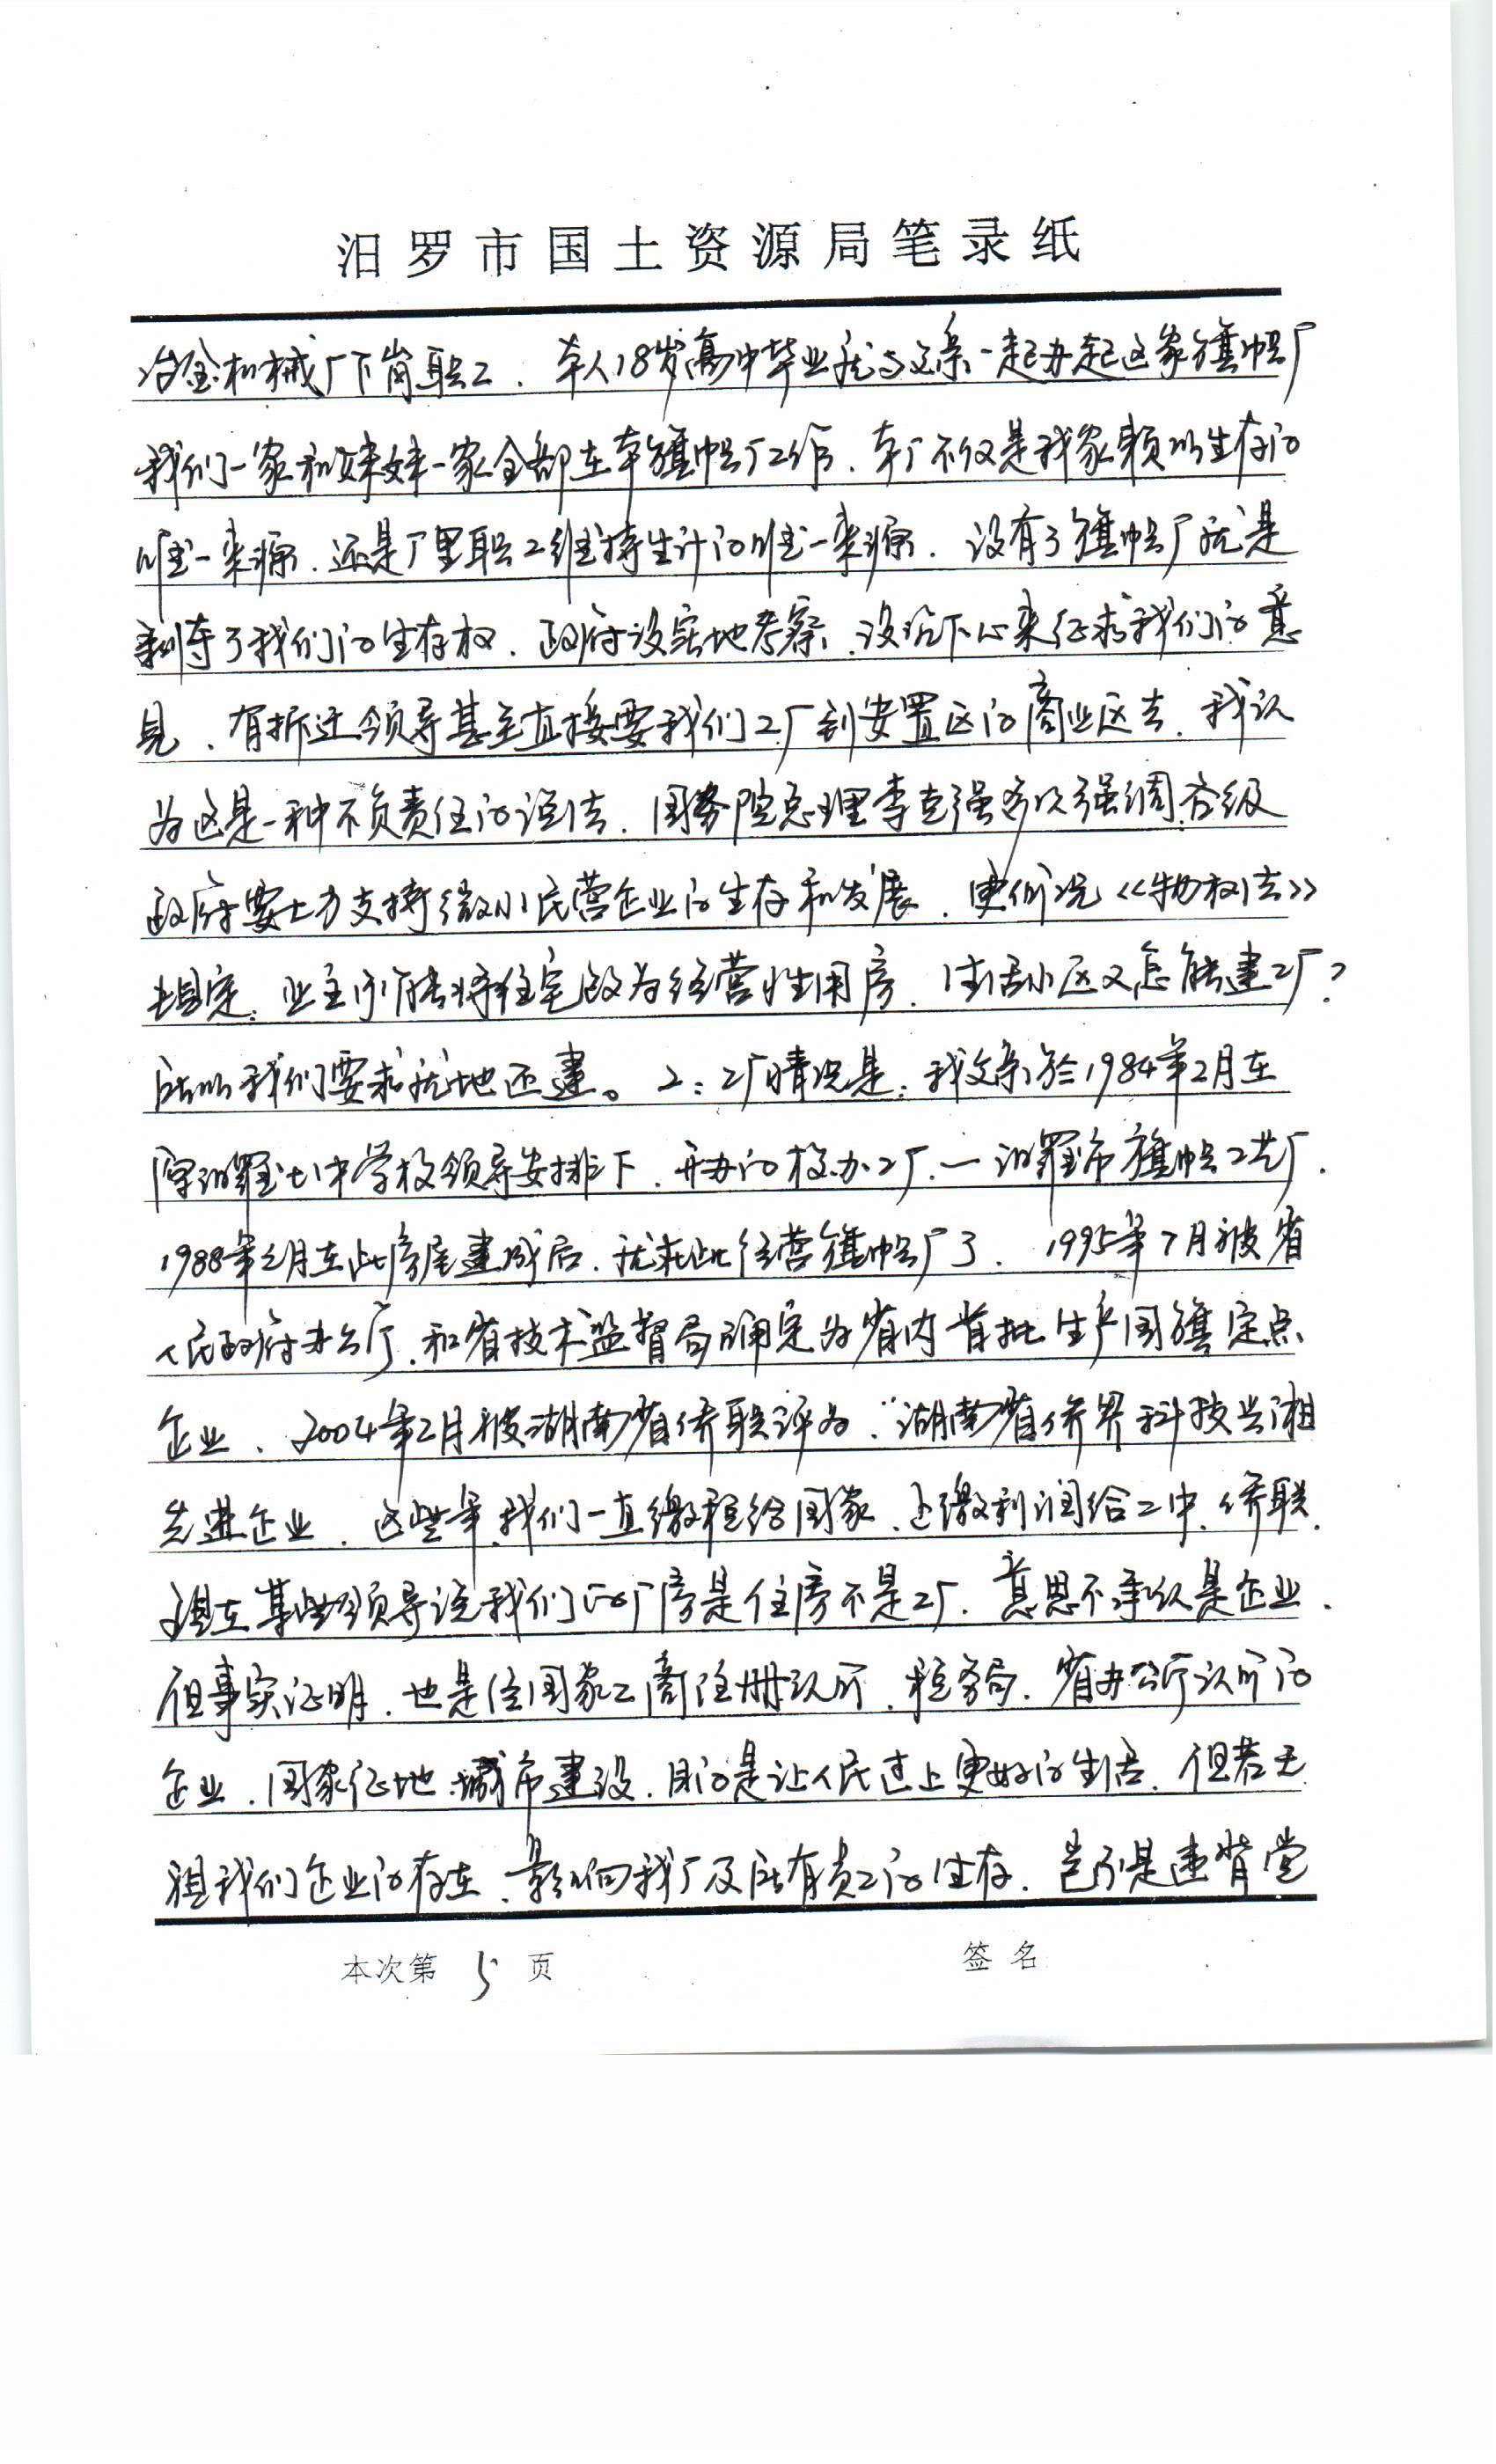 汨罗市国土资源局笔录纸
冶金机械厂下岗职工、本人18岁高中毕业就与父亲一起办起这家旗帜厂
我们一家和妹妹一家全部在本旗帜厂工作、本厂不仅是我家赖以生存的
唯一来源、还是厂里职工维持生计的唯一来源、没有了旗帜厂就是
剥夺了我们的生存权、政府没实地考察、没沉下心来征求我们的意
见、有拆迁领导甚至直接要我们工厂到安置区的商业区去、我认
为这是一种不负责任的说法、国务院总理李克强多次强调各级
政府要大力支持微小民营企业的生存和发展、更何况《物权法》
规定：业主不能将住宅改为经营性用房、生活小区又怎能建工厂？
所以我们要求就地还建。2：工厂情况是：我父亲於1984年2月在
原汨罗七中学校领导安排下、开办的校办工厂、一汨罗市旗帜工艺厂、
1988年2月在此房屋建成后、就在此经营旗帜厂了、1995年7月被省
人民政府办公厅、和省技术监督局确定为省内首批生产国旗定点
企业、2004年2月被湖南省侨联评为："湖南省侨界科技兴湘
先进企业、这些年、我们一直缴税给国家、还缴利润给二中、侨联、
现在某些领导说我们的厂房是住房不是工厂、意思不承认是企业、
但事实证明、也是经国家工商注册认可、税务局、省办公厅认可的
企业、国家征地、城市建设、目的是让人民过上更好的生活、但若无
视我们企业的存在、影响我厂及所有员工的生存、岂不是违背党
本次第 5 页 签名